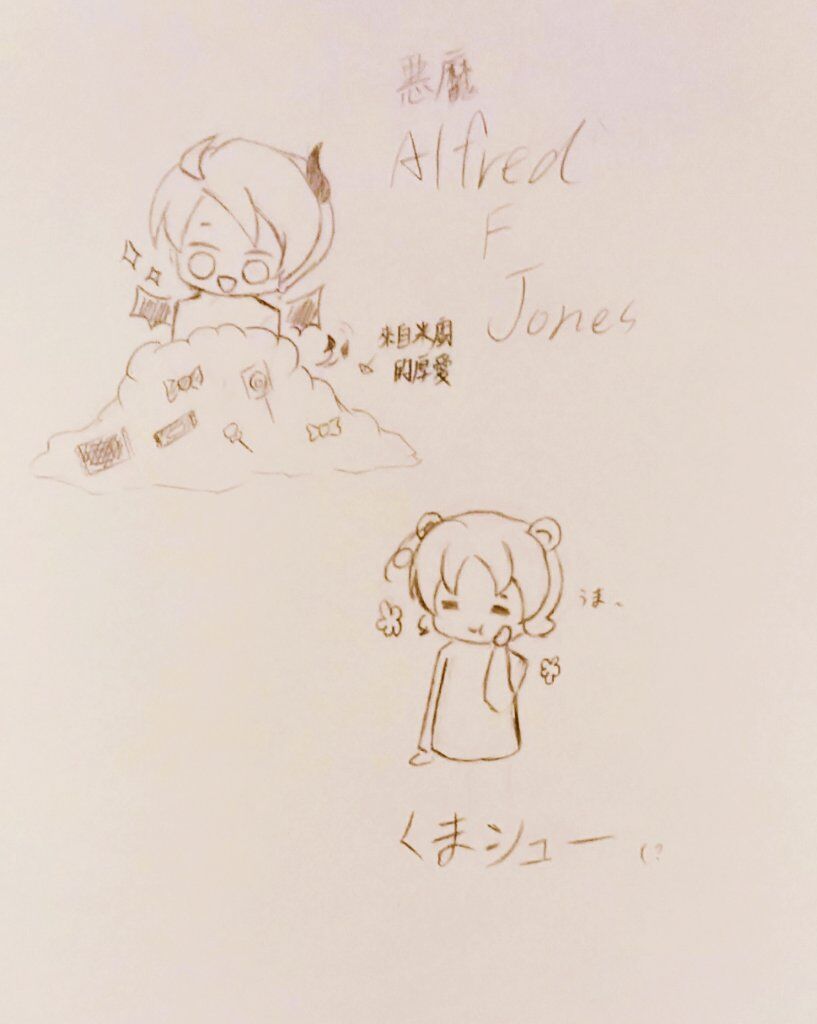 惡魔
Alfred
F
Jones
來自米廚
的厚愛
うま、
くまシュー (?